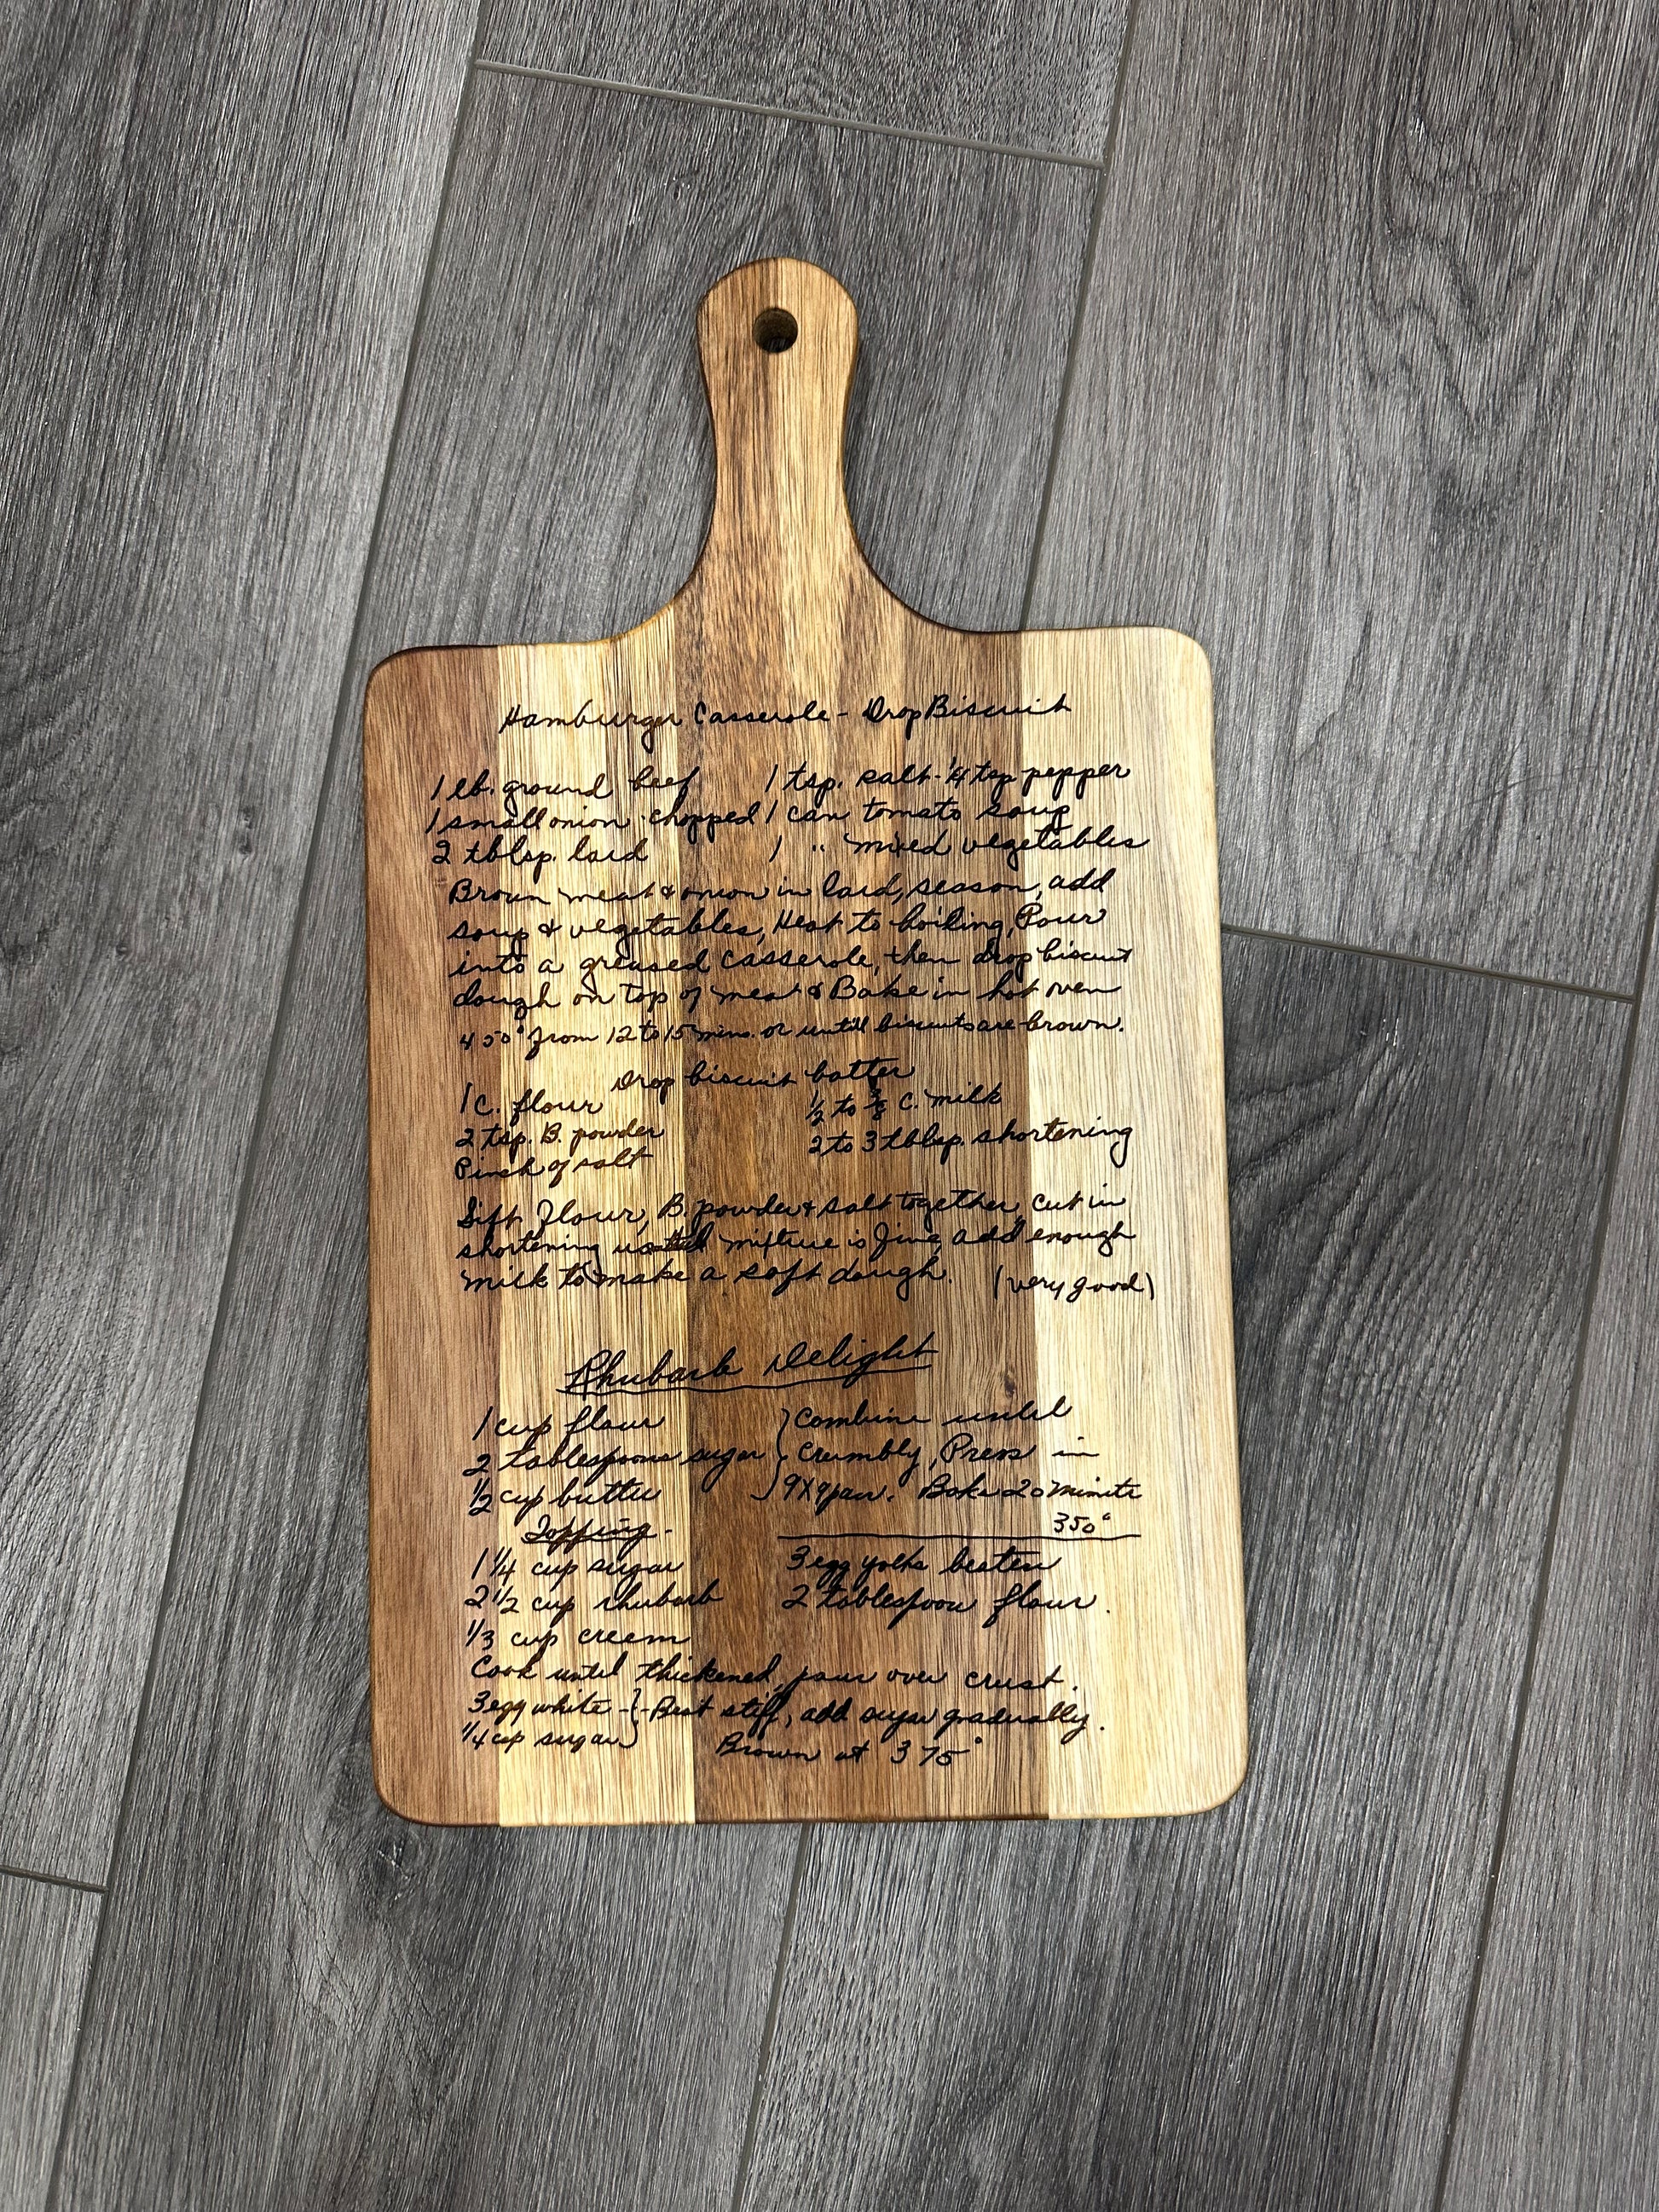 Hamburger Casserole - Drop Biscuit
1 lb. ground beef 1 tsp. salt - 1/4 tsp pepper
1 small onion chopped 1 can tomato soup
2 tblsp. lard 1 " mixed vegetables
Brown meat & onion in lard, season, add
soup & vegetables, Heat to boiling, Pour
into a greased casserole, then drop biscuit
dough on top of meat & Bake in hot oven
450° from 12 to 15 mins. or until biscuits are brown.
Drop biscuit batter
1 c. flour 1/2 to 3/8 c. milk
2 tsp. B. powder 2 to 3 tblsp. shortening
Pinch of salt
Sift Flour, B. powder & salt together, cut in
shortening until mixture is fine, add enough
milk to make a soft dough. (very good)
Rhubarb Delight
1 cup flour } Combine until
2 tablespoons sugar } crumbly, Press in
1/2 cup butter } 9X9 pan. Bake 20 minute
350°
Topping -
1 1/4 cup sugar 3 egg yolks beaten
2 1/2 cup rhubarb 2 tablespoon flour.
1/3 cup cream
Cook until thickened, pour over crust.
3 egg white - } - Beat stiff, add sugar gradually.
1/4 cup sugar } Brown at 375°